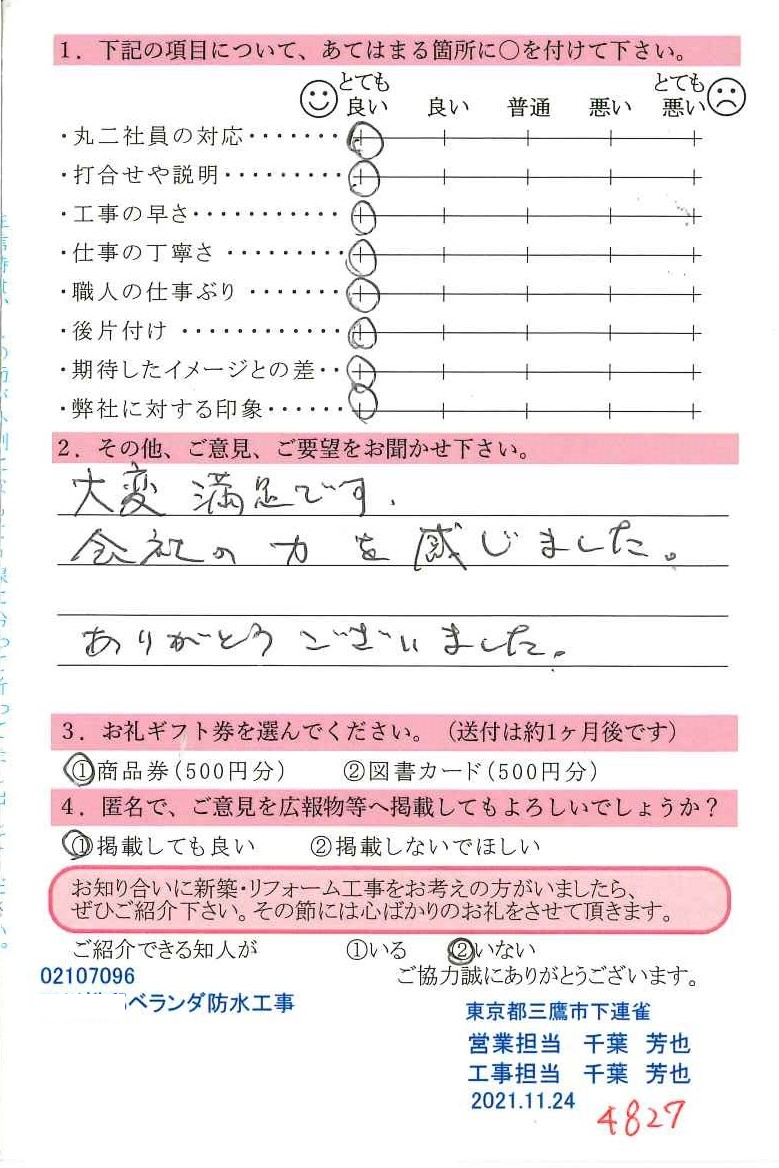 1．下記の項目について、あてはまる箇所に○を付けて下さい。
とても良い 良い 普通 悪い とても悪い
・丸二社員の対応・・・・・・・
・打合せや説明・・・・・・・・・
・工事の早さ・・・・・・・・・・・
・仕事の丁寧さ・・・・・・・・・
・職人の仕事ぶり・・・・・・・
・後片付け・・・・・・・・・・・・
・期待したイメージとの差・・
・弊社に対する印象・・・・・・
2．その他、ご意見、ご要望をお聞かせ下さい。
大変満足です.
会社の力を感じました。
ありがとうございました。
3．お礼ギフト券を選んでください。（送付は約1ヶ月後です）
①商品券（500円分） ②図書カード（500円分）
4．匿名で、ご意見を広報物等へ掲載してもよろしいでしょうか？
①掲載しても良い ②掲載しないでほしい
お知り合いに新築・リフォーム工事をお考えの方がいましたら、
ぜひご紹介下さい。その節には心ばかりのお礼をさせて頂きます。
ご紹介できる知人が ①いる ②いない
02107096
ご協力誠にありがとうございます。
ベランダ防水工事
東京都三鷹市下連雀
営業担当 千葉 芳也
工事担当 千葉 芳也
2021.11.24
4827